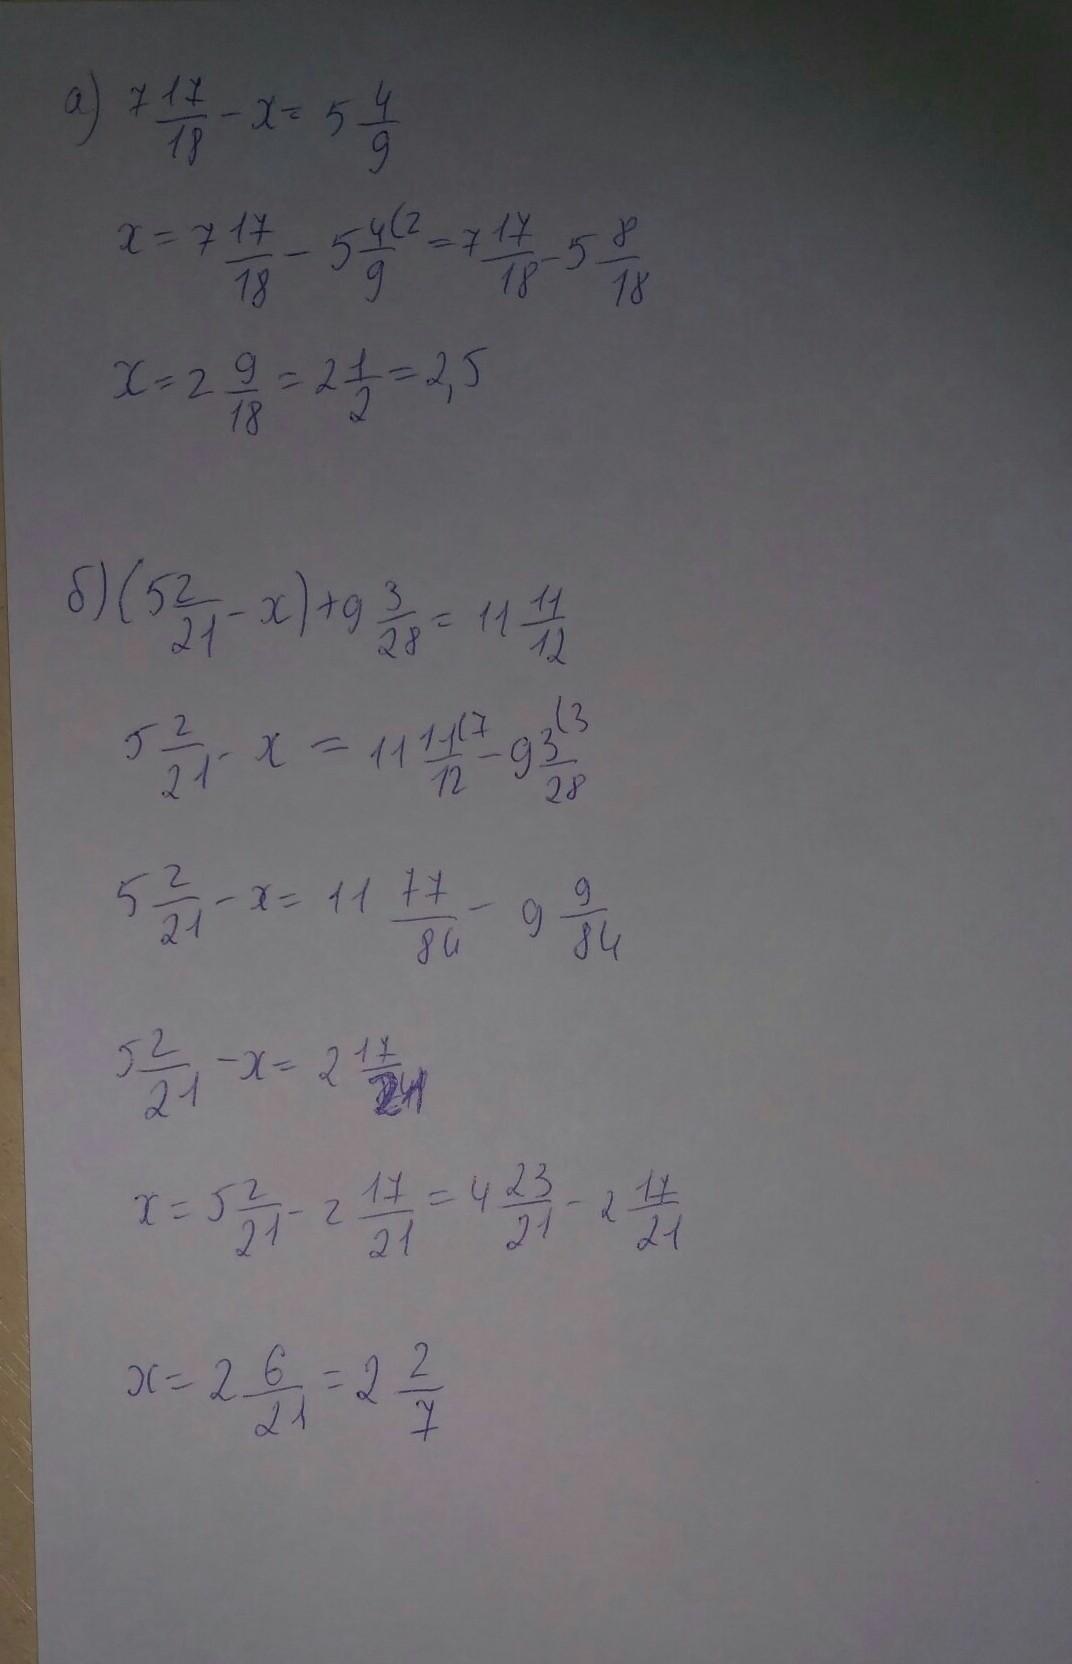 а) 7 17/18 - x = 5 4/9
x = 7 17/18 - 5 4/9 (2 = 7 17/18 - 5 8/18
x = 2 9/18 = 2 1/2 = 2,5
б) (5 2/21 - x) + 9 3/28 = 11 11/12
5 2/21 - x = 11 11/12 (7 - 9 3/28 (3
5 2/21 - x = 11 77/84 - 9 9/84
5 2/21 - x = 2 17/21
x = 5 2/21 - 2 17/21 = 4 23/21 - 2 17/21
x = 2 6/21 = 2 2/7